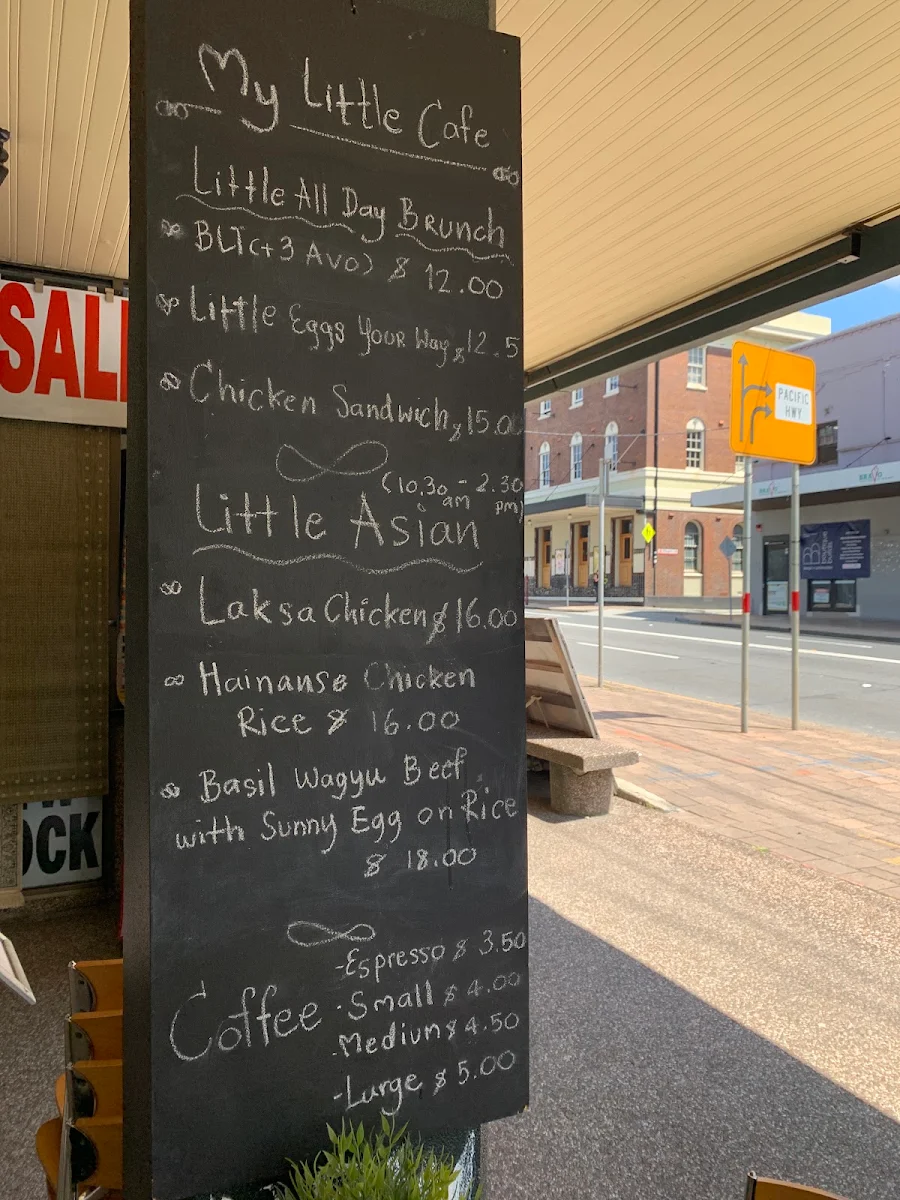 My Little Cafe
Little All Day Brunch
BLT (+3 Avo) $ 12.00
Little Eggs Your Way $ 12.5
Chicken Sandwich $ 15.00
(10.30 am - 2.30 pm)
Little Asian
Laksa Chicken $ 16.00
Hainanse Chicken
Rice $ 16.00
Basil Wagyu Beef
with Sunny Egg on Rice
$ 18.00
Coffee
-Espresso $ 3.50
-Small $ 4.00
-Medium $ 4.50
-Large $ 5.00
SAL
OCK
PACIFIC
HWY